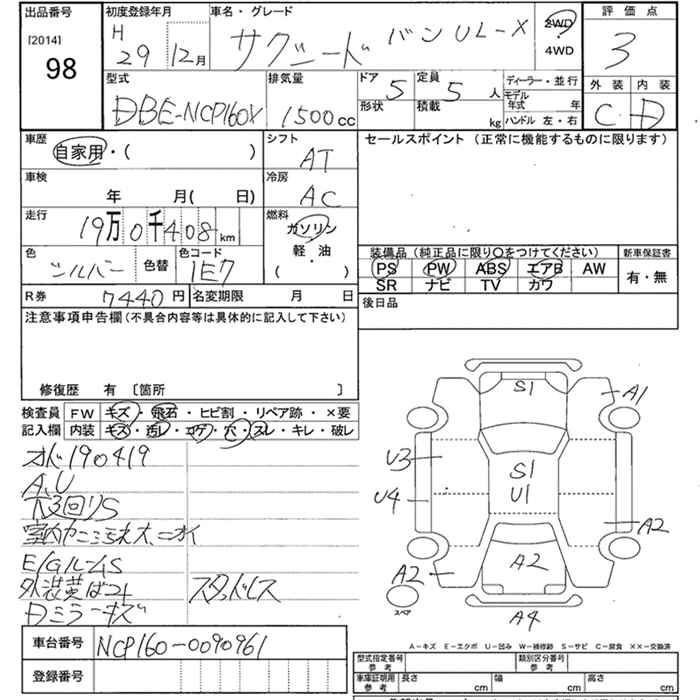 出品番号 初度登録年月 車名・グレード 2WD 評価点
[2014] H サクシードバン UL-X 4WD 3
98 29 12月
型式 排気量 ドア 定員 ディーラー・並行 外装 内装
DBE-NCP160V 1500cc 5 5人 モデル年式 年 C D
形状 積載 kg ハンドル 左・右
車歴 シフト セールスポイント(正常に機能するものに限ります)
自家用・( ) AT
車検 冷房
年 月( 日) AC
走行 燃料
19万0千408km ガソリン
色 色替 色コード 軽・油 装備品(純正品に限り○をつけてください) 新車保証書
シルバー 1E7 ( ・ ) PS PW ABS エアB AW 有・無
SR ナビ TV カワ
R券 7440円 名変期限 月 日 後日品
注意事項申告欄(不具合内容等は具体的に記入して下さい)
修復歴 有 〔箇所 〕
検査員 FW キズ・飛石・ヒビ割・リペア跡・×要
記入欄 内装 キズ・汚レ・コゲ・穴・スレ・キレ・破レ
S1
A1
U3
S1
U1
U4
A2
A2
A2
A4
スペア
オド190419
A、U
下3回りS
室内カニミ汚れ大、ニオイ
E/GルームS
外装黄ばみ スタッドレス
Dミラーキズ
車台番号 NCP160-0090961
登録番号
A-キズ E-エクボ U-凹み W-補修跡 S-サビ C-腐食 XX-交換済
型式指定番号 参考 類別区分番号 参考
車庫証明用 参考 長さ cm 幅 cm 高さ cm